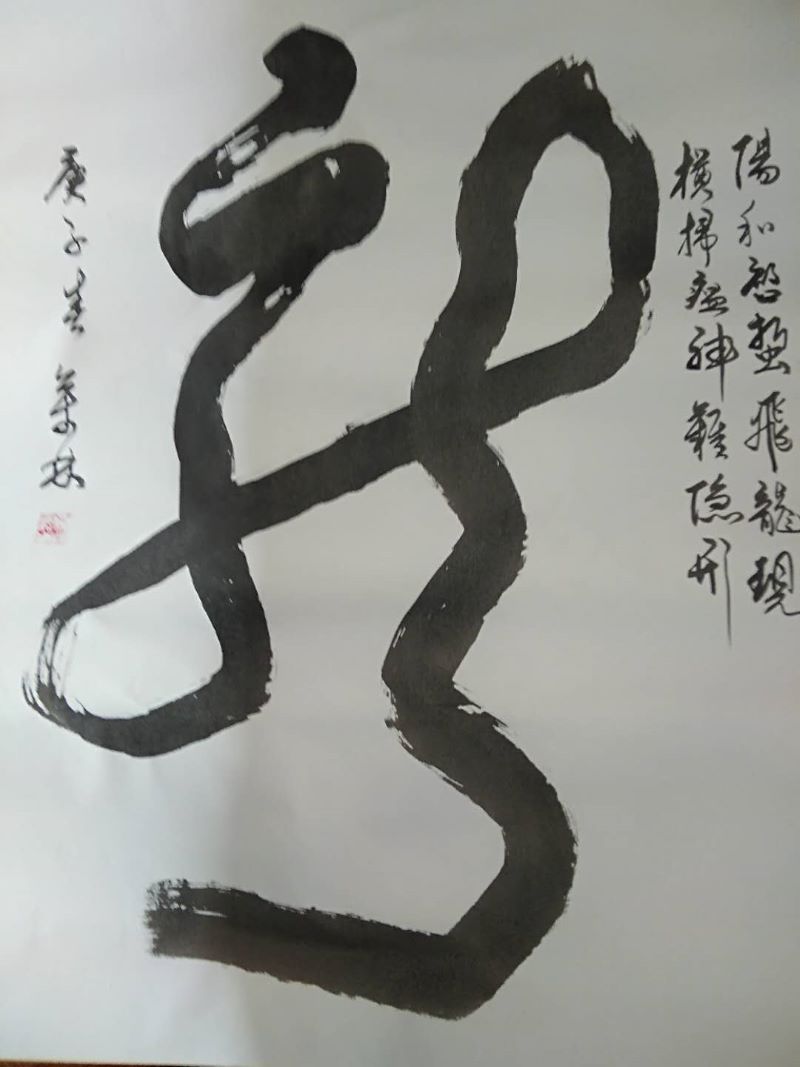 陽和啓蟄飛龍現
橫掃瘟神難隱形
龍
庚子春 業林